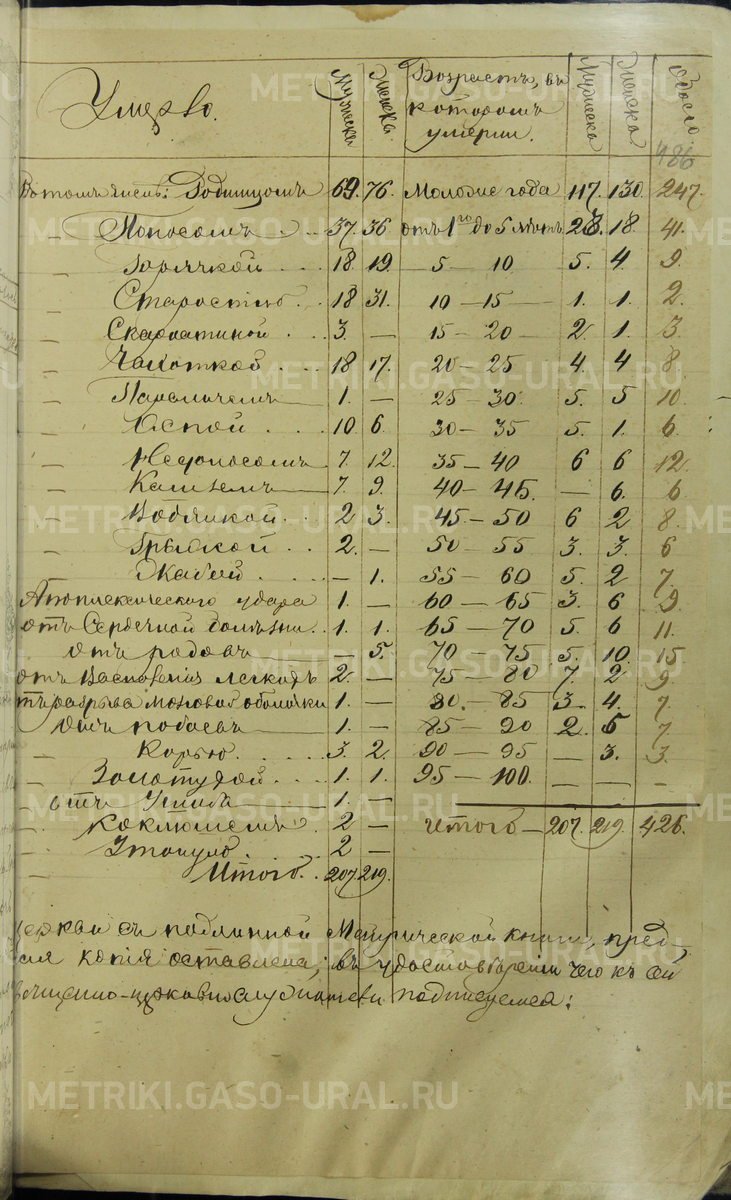 METRIKI.GASO-URAL.RU
Умерло. Мужеска Женска Возрастъ, въ которомъ умерли. Мужеска Женска Обоего
486
Въ томъ числѣ: Родимцомъ 69. 76. Моложе года 117. 130. 247.
— Поносомъ 37. 36 отъ 1го до 5 лѣтъ 23. 18. 41.
— Горячкой 18. 19. — 5 — 10 5. 4. 9.
— Старостію 18 31. 10 — 15 — 1. 1. 2.
— Скарлатиной 3. — 15 — 20 — 2. 1. 3.
— Чахоткой 18 17. 20 — 25 4. 4 8.
— Параличемъ 1. — 25 — 30. 5. 5 10.
— Оспой 10. 6. 30 — 35 5. 1. 6.
— Недоносомъ 7. 12. 35 — 40 6 6 12.
— Кашлемъ 7. 9. 40 — 45. — 6. 6
— Водянкой 2 3. 45 — 50 6 2 8.
— Грыжой 2. — 50 — 55 3. 3. 6
Жабой — 1. 55 — 60 5. 2 7.
Апоплексическаго удара 1. — 60 — 65 3. 6 9.
отъ Сердечной болѣзни 1. 1. 65 — 70 5. 6 11.
отъ родовъ — 5. 70 — 75 5. 10. 15
отъ Воспаленія легкихъ 2. — 75 — 80 7 2 9
разрыва мозговой оболочки 1. — 80. — 85 3. 4. 7.
Отъ побоевъ 1. — 85 — 90 2. 5 7.
— Корью 3. 2. 90 — 95 — 3. 3.
— Золотухой 1. 1. 95 — 100. — — —
— отъ 1. —
— Коклюшемъ 2 — Итого — 207. 219. 426.
— Утонуло 2 —
Итого 207. 219.
церкви съ подлинной Метрической книги, пред-
копія оставлена; въ удостовѣреніи чего къ сей
подписуемся: